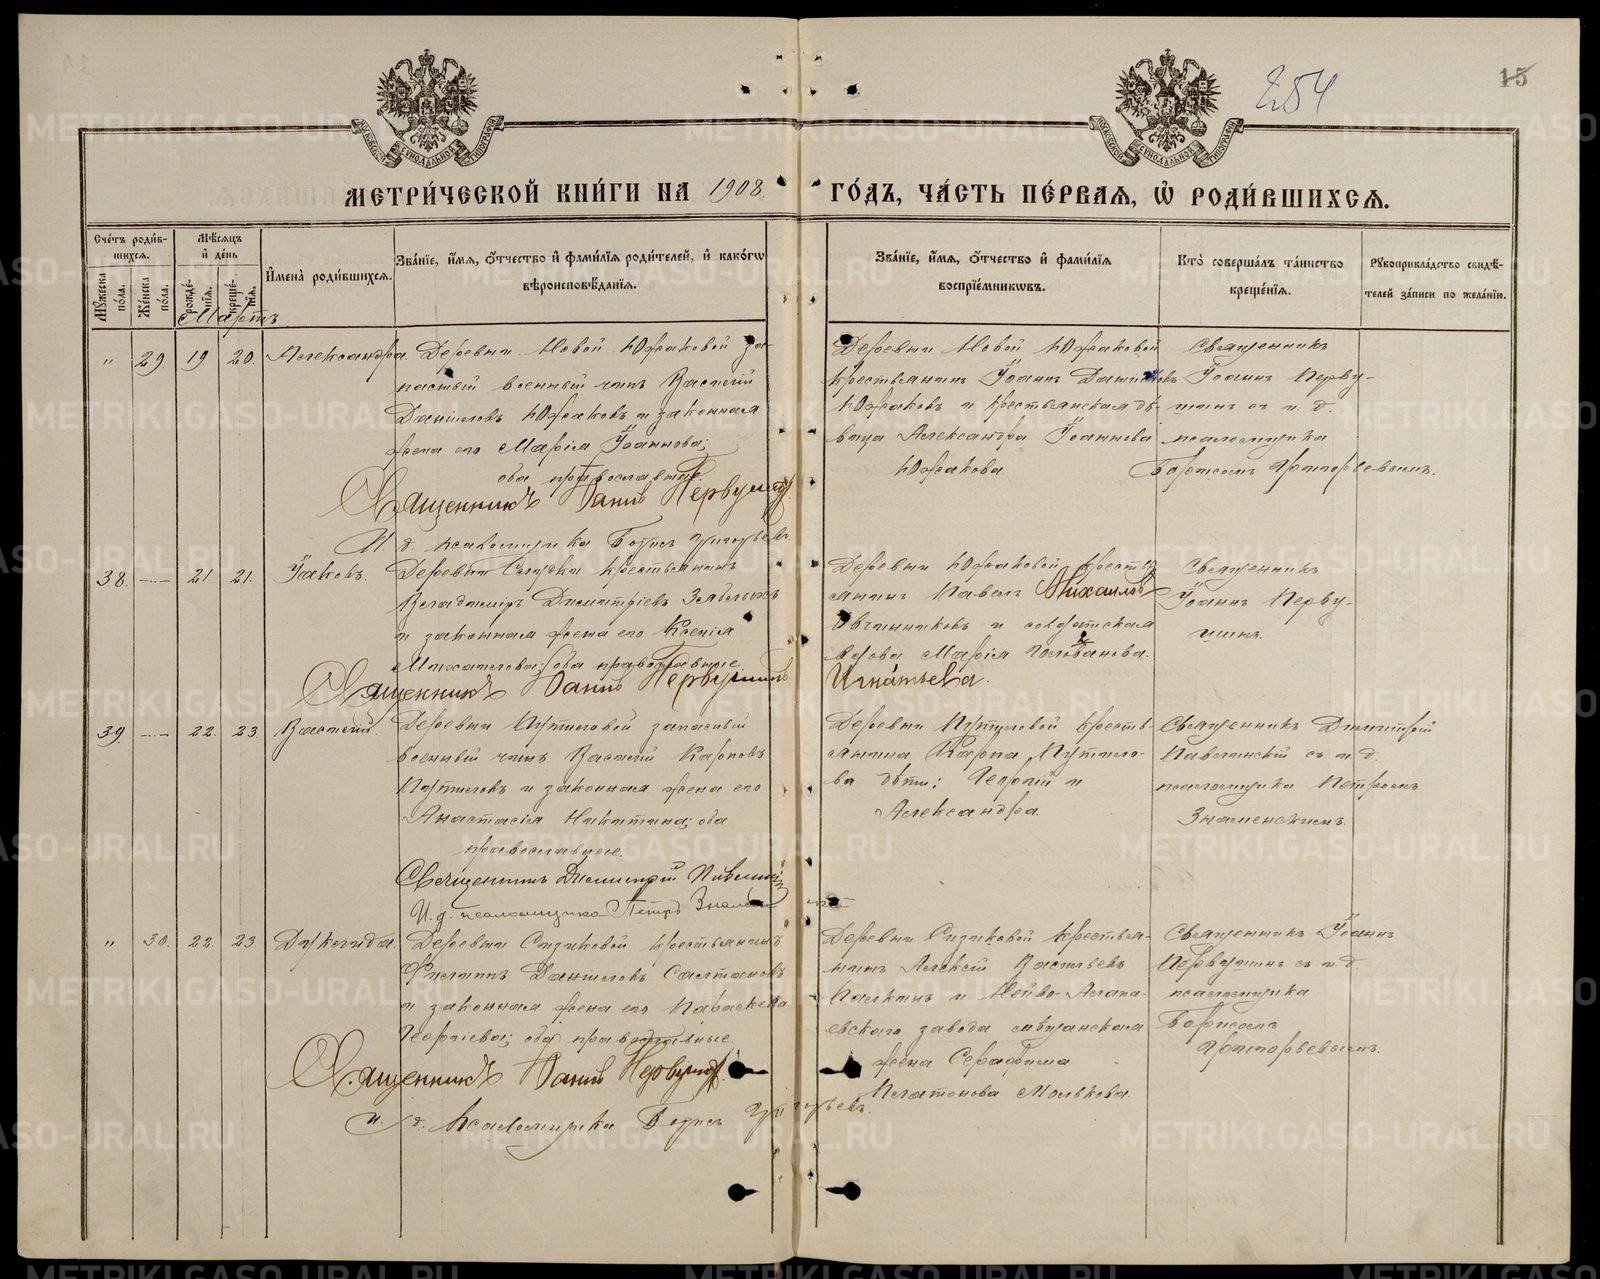 254
15
МОСКОВСКОЙ СѴНОДАЛЬНОЙ ТѴПОГРАФІИ
МОСКОВСКОЙ СѴНОДАЛЬНОЙ ТѴПОГРАФІИ
МЕТРИ́ЧЕСКОЙ КНИ́ГИ НА 1908 ГО́ДЪ, ЧА́СТЬ ПЕ́РВАѦ, Ѡ҆ РОДИ́ВШИХСѦ.
Сче́тъ роди́в-
шихсѧ.
Мꙋ́жеска по́ла.
Же́нска по́ла.
Мѣ́сѧцъ
и҆ де́нь
рожде́-
нїѧ.
креще́-
нїѧ.
И҆мена̀ роди́вшихсѧ.
Зва́нїе, и҆́мѧ, ѻ҆́тчество и҆ фами́лїѧ роди́телей, и҆ како́гѡ
вѣроисповѣ́данїѧ.
Зва́нїе, и҆́мѧ, ѻ҆́тчество и҆ фами́лїѧ
воспрїе́мникѡвъ.
Кто̀ соверша́лъ та́инство
креще́нїѧ.
Рꙋкоприкла́дство свидѣ́-
телей за́писи по жела́нїю.
Мартъ
" 29. 19 20. Александра.
Деревни Новой Южаковой за-
пасный военный чинъ Василій
Даниловъ Южаковъ и законная
жена его Марія Іоаннова;
оба православные.
Священникъ Іоаннъ Первушинъ
И. д. псаломщика Борисъ Григорьевъ
Деревни Новой Южаковой
крестьянинъ Іоаннъ Даниловъ
Южаковъ и крестьянская дѣ-
вица Александра Іоаннова
Южакова
Священникъ
Іоаннъ Перву-
шинъ съ и. д.
псаломщика
Борисомъ Григорьевымъ.
38. -"- 21 21. Іаковъ.
Деревни крестьянинъ
Владиміръ Димитріевъ
и законная жена его Ксенія
Михаилова; оба православные.
Священникъ Іоаннъ Первушинъ
Деревни Южаковой кресть-
янинъ Павелъ Михаиловъ
Овчинниковъ и солдатская
вдова Марія Голованова.
Игнатьева.
Священникъ
Іоаннъ Перву-
шинъ.
39. -"- 22. 23. Василій.
Деревни Путиловой запасный
военный чинъ Василій Карповъ
Путиловъ и законная жена его
Анастасія Никитина; оба
православные.
Священникъ Димитрій
И. д. псаломщика Петръ Знаменскій
Деревни Путиловой кресть-
янина Карпа Путило-
ва дѣти: Георгій и
Александра.
Священникъ Димитрій
съ и. д.
псаломщика Петромъ
Знаменскимъ.
" 30. 22. 23. Дукелида.
Деревни Сизиковой крестьянинъ
Филиппъ Даниловъ Салтановъ
и законная жена его Параскева
Георгіева; оба православные.
Священникъ Іоаннъ Первушинъ.
и. д. псаломщика Борисъ Григорьевъ.
Деревни Сизиковой крестья-
нинъ Алексій Васильевъ
и Нейво-Алапа-
евскаго завода мѣщанская
жена Серафима
Платонова Молвкова.
Священникъ Іоаннъ
Первушинъ съ и. д.
псаломщика
Борисомъ
Григорьевымъ.
METRIKI.GASO-URAL.RU